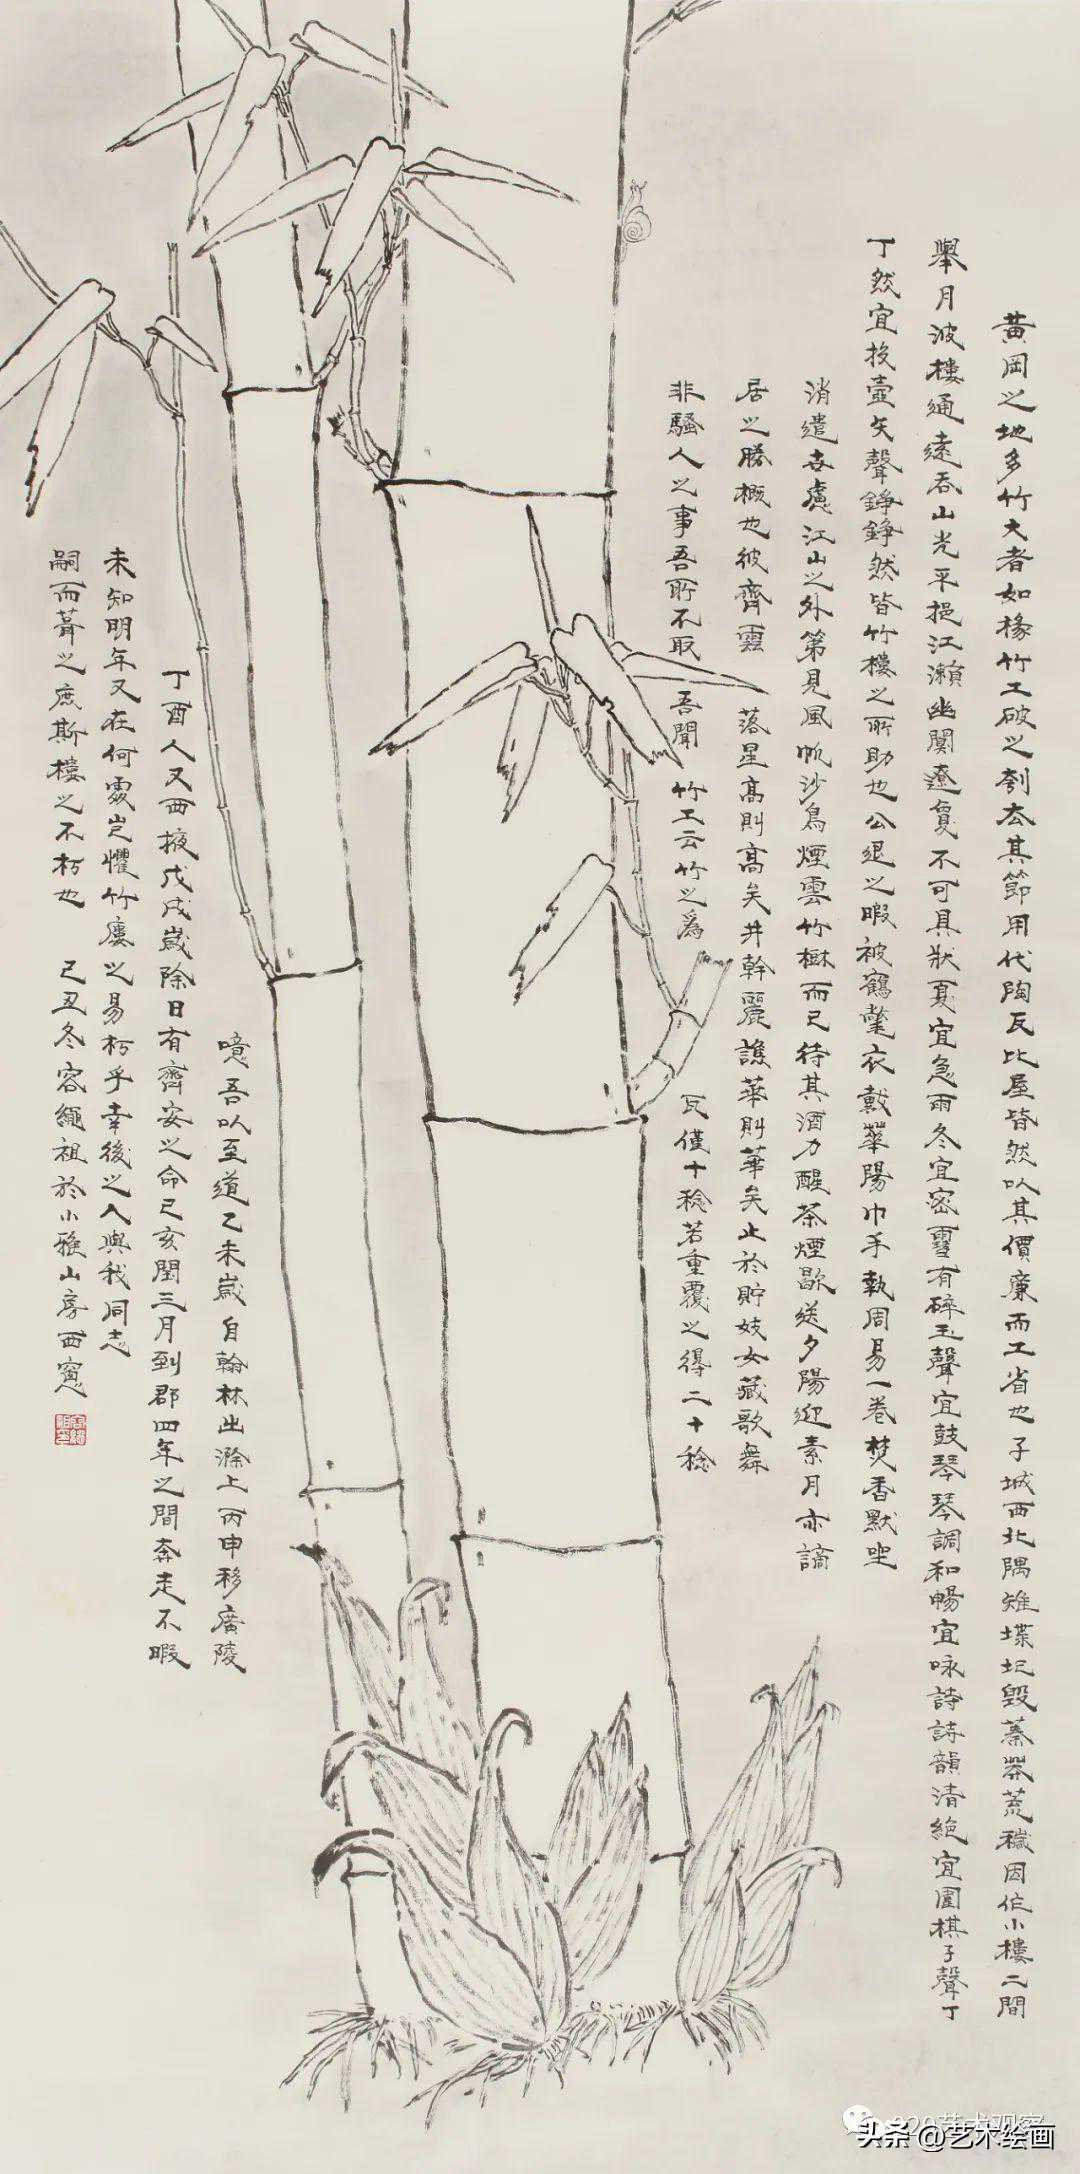 黃岡之地多竹大者如椽竹工破之刳去其節用代陶瓦比屋皆然以其價廉而工省也子城西北隅雉堞圮毀蓁莽荒穢因作小樓二間
與月波樓通遠吞山光平挹江瀨幽闃遼夐不可具狀夏宜急雨冬宜密雪有碎玉聲宜鼓琴琴調和暢宜咏詩詩韻清絕宜圍棋子聲丁
丁然宜投壺矢聲錚錚然皆竹樓之所助也公退之暇被鶴氅衣戴華陽巾手執周易一卷焚香默坐
消遣世慮江山之外第見風帆沙鳥煙雲竹樹而已待其酒力醒茶煙歇送夕陽迎素月亦謫
居之勝概也彼齊雲 落星高則高矣井幹麗譙華則華矣止於貯妓女藏歌舞
非騷人之事吾所不取 吾聞 竹工云竹之爲 瓦僅十稔若重覆之得二十稔
噫吾以至道乙未歲自翰林出滁上丙申移廣陵
丁酉入又西掖戊戌歲除日有齊安之命己亥閏三月到郡四年之間奔走不暇
未知明年又在何處豈懼竹廔之易朽乎幸後之人與我同志
嗣而葺之庶斯樓之不朽也 己丑冬容繩祖於小雅山房西窻
艺术观察
头条 @艺术绘画